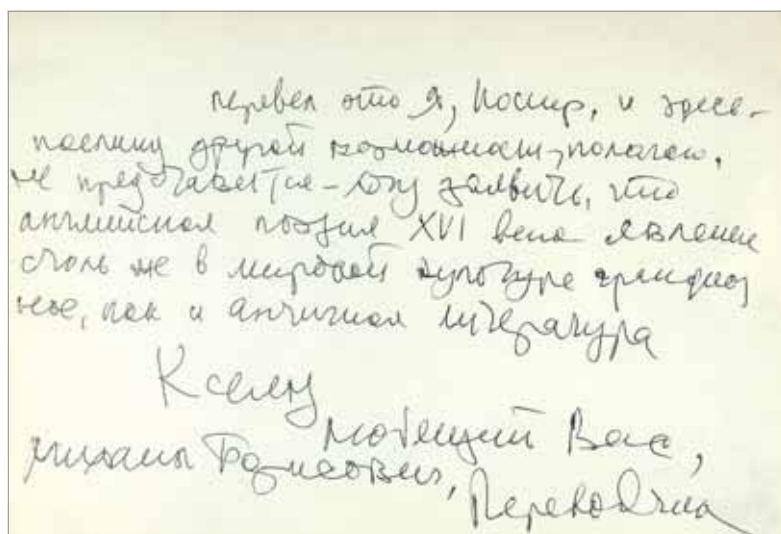 перевел это я, Посир, и здесь –
поелику другой возможности, полагаю,
не представится – хочу заявить, что
английская поэзия XVI века явление
столь же в мировой культуре грандиоз
ное, как и античная литература
К сему
любящий Вас,
Михаил Борисович, Переводчик